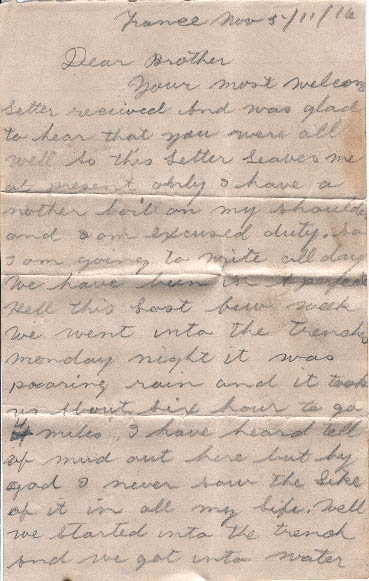 France Nov 5/11/16
Dear Brother
Your most welcom
letter received and was glad
to hear that you were all
well as this letter leaves me
at present only I have a
nother boil on my shoulder
and I am excused duty. so
I am going to write all day
We have been in a perfect
Hell this last few week
we went into the trenchs
monday night it was
pooring rain and it took
us about six hour to go
4 miles, I have heard tell
of mud out here but by
god I never saw the like
of it in all my life. Well
we started into the trench
and we got into water